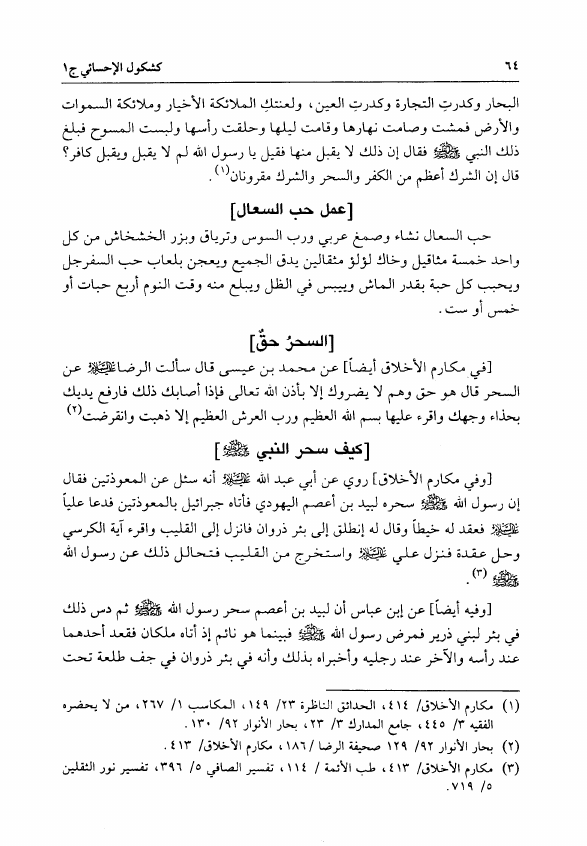 ٦٤ كشكول الإحسائي ج١
البحار وكدرتِ التجارة وكدرتِ العين، ولعنتكِ الملائكة الأخيار وملائكة السموات
والأرض فمشت وصامت نهارها وقامت ليلها وحلقت رأسها ولبست المسوح فبلغ
ذلك النبي ﷺ فقال إن ذلك لا يقبل منها فقيل يا رسول الله لم لا يقبل ويقبل كافر؟
قال إن الشرك أعظم من الكفر والسحر والشرك مقرونان(١).
[عمل حب السعال]
حب السعال نشاء وصمغ عربي ورب السوس وترياق وبزر الخشخاش من كل
واحد خمسة مثاقيل وخاك لؤلؤ مثقالين يدق الجميع ويعجن بلعاب حب السفرجل
ويحبب كل حبة بقدر الماش وييبس في الظل ويبلع منه وقت النوم أربع حبات أو
خمس أو ست.
[السحرُ حقٌ]
[في مكارم الأخلاق أيضاً] عن محمد بن عيسى قال سألت الرضا عليه السلام عن
السحر قال هو حق وهم لا يضروك إلا بأذن الله تعالى فإذا أصابك ذلك فارفع يديك
بحذاء وجهك واقرء عليها بسم الله العظيم ورب العرش العظيم إلا ذهبت وانقرضت(٢)
[كيف سحر النبي ﷺ]
[وفي مكارم الأخلاق] روي عن أبي عبد الله عليه السلام أنه سئل عن المعوذتين فقال
إن رسول الله ﷺ سحره لبيد بن أعصم اليهودي فأتاه جبرائيل بالمعوذتين فدعا علياً
عليه السلام فعقد له خيطاً وقال له إنطلق إلى بئر ذروان فانزل إلى القليب واقرء آية الكرسي
وحل عقدة فنزل علي عليه السلام واستخرج من القليب فتحالل ذلك عن رسول الله
ﷺ(٣).
[وفيه أيضاً] عن إبن عباس أن لبيد بن أعصم سحر رسول الله ﷺ ثم دس ذلك
في بئر لبني ذرير فمرض رسول الله ﷺ فبينما هو نائم إذ أتاه ملكان فقعد أحدهما
عند رأسه والآخر عند رجليه وأخبراه بذلك وأنه في بئر ذروان في جف طلعة تحت
(١) مكارم الأخلاق/ ٤١٤، الحدائق الناظرة ٢٣/ ١٤٩، المكاسب ١/ ٢٦٧، من لا يحضره
الفقيه ٣/ ٤٤٥، جامع المدارك ٣/ ٢٣، بحار الأنوار ٩٢/ ١٣٠.
(٢) بحار الأنوار ٩٢/ ١٢٩ صحيفة الرضا / ١٨٦، مكارم الأخلاق/ ٤١٣.
(٣) مكارم الأخلاق/ ٤١٣، طب الأئمة / ١١٤، تفسير الصافي ٥/ ٣٩٦، تفسير نور الثقلين
٥/ ٧١٩.